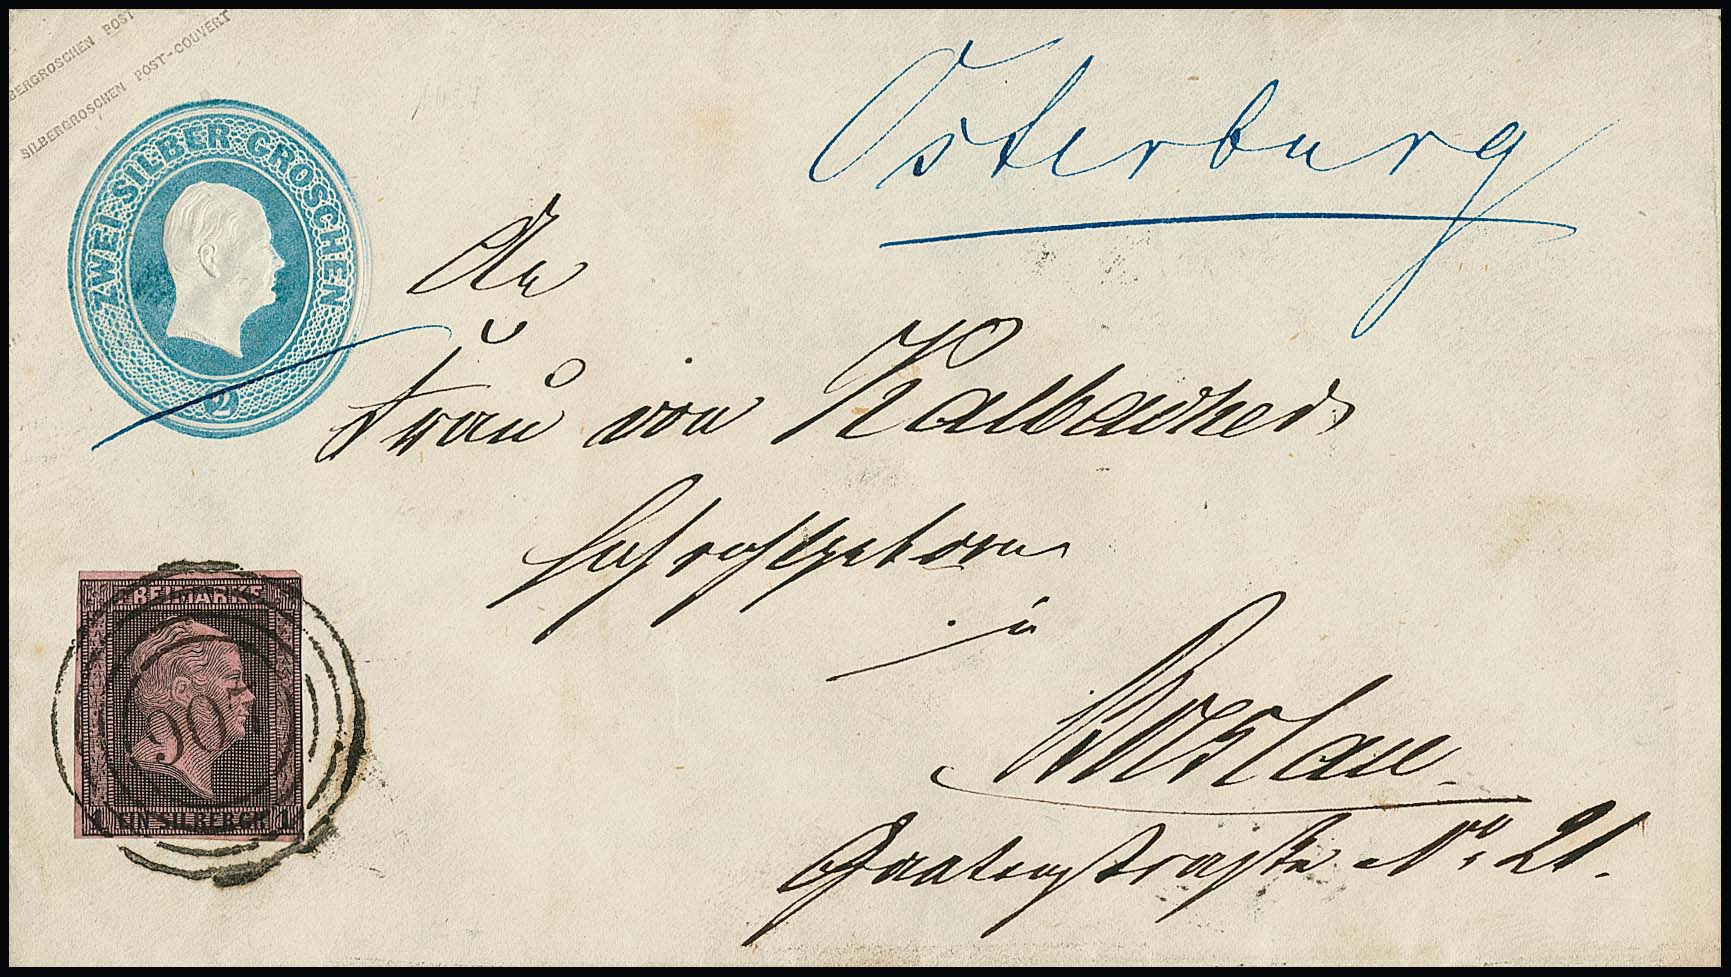 BERGROSCHEN POST
SILBERGROSCHEN POST-COUVERT
ZWEI SILBER GROSCHEN
2
Osterburg
An
Frau von
Hochwohlgeboren
in
Breslau
Gartenstraße No 21.
FREIMARKE
1 EIN SILBERGR. 1